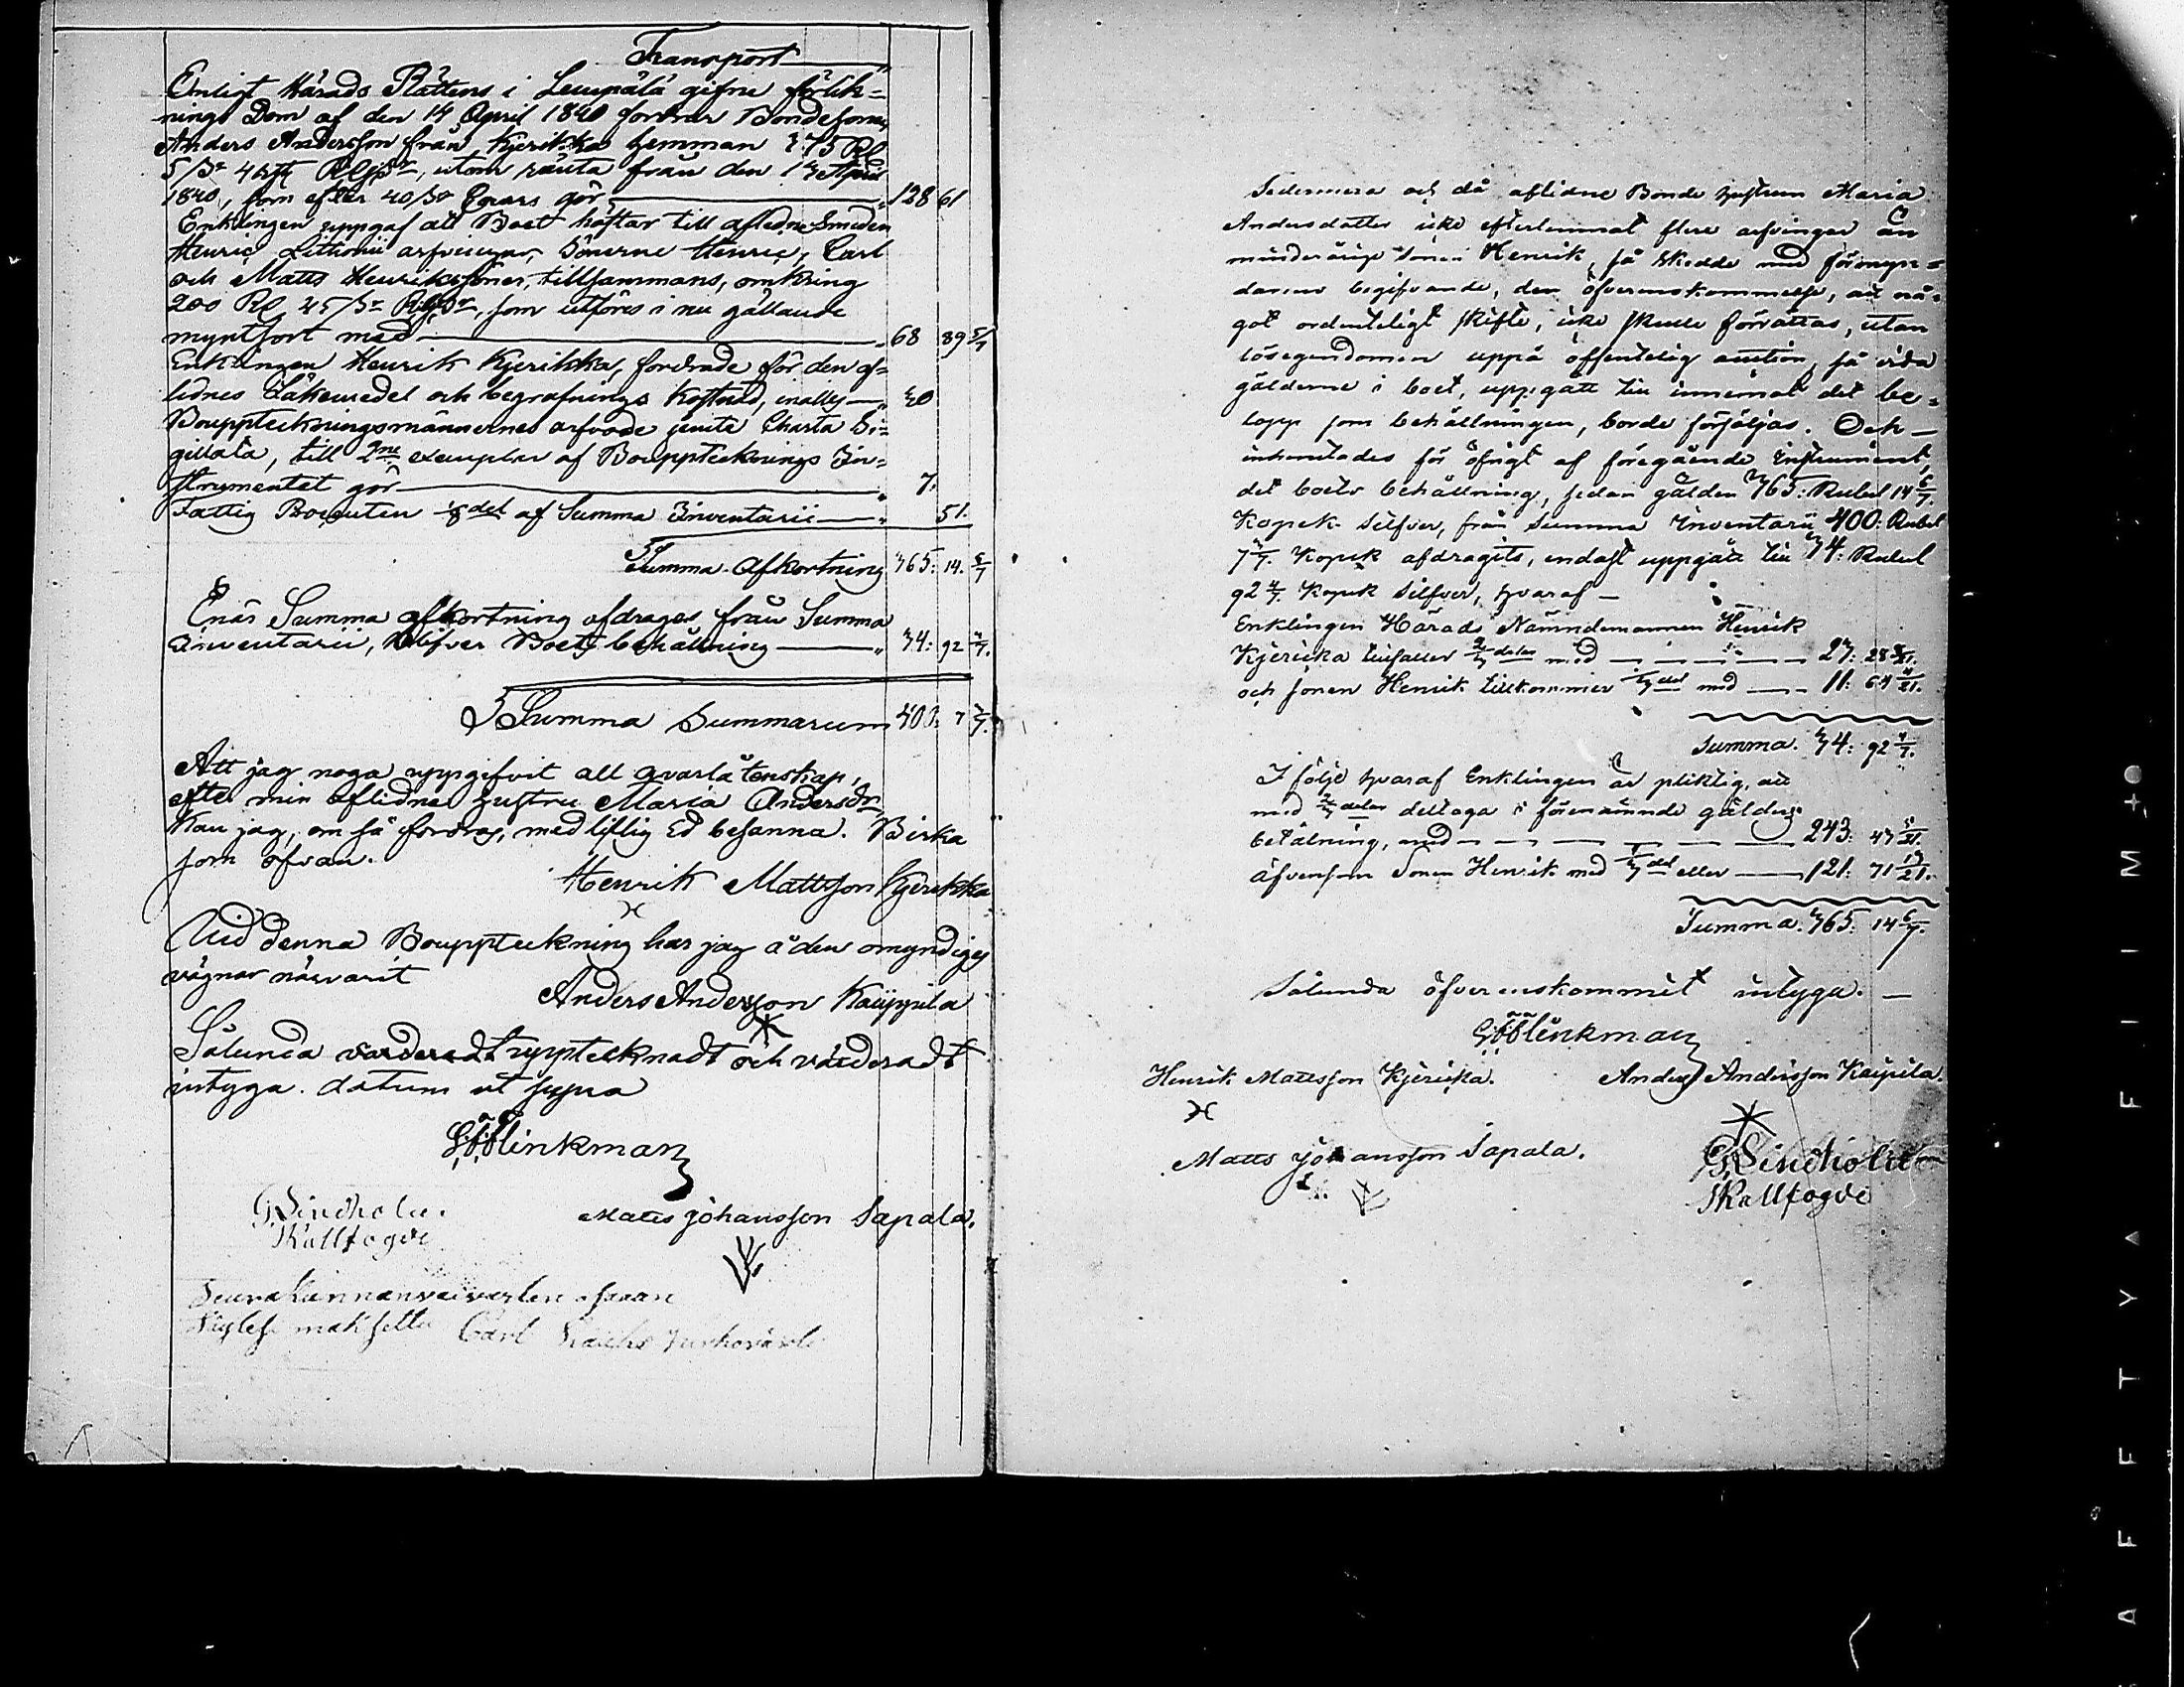 Transport
Enligt Härads Rättens i Lempälä gifne förlik=
nings Dom af den 14 April 1840 fordrar Bondesonen
Anders Andersson från Kjerikka hemman 375 Rl
5/3r 4 Rgs, utom ränta från den 14 April
1840, som efter 40/3r Cours gör 128 61
Enklingen uppgaf att Boet häftar till afledne Smeden
Henric Lithenii arfvingar, Sönerne Henric, Carl
och Matts Henrikssöner, tillsammans, omkring
200 Rl 45/3r Rgs, som utföres i nu gällande
myntsort med 68 89 5/7
Enklingen Henrik Kjerikka, fordrade för den af=
lidnes Läkemedel och begrafnings Kostnad, inalles 40
Bouppteckningsmännernes arfvode jemte Charta Si=
gillata, till 2ne exemplar af Bouppteknings In=
strumentet gör 7.
Fattig Procenten 1/8 del af Summa Inventarii 51.
Summa Afkortning 365: 14. 6/7
Enär Summa afkortning afdrages från Summa
Inventarii, blifver Boets behållning 34: 92 4/7.
Summa Summarum 400: 7 3/7.
Att jag noga uppgifvit all qvarlåtenskap,
efter min aflidna hustru Maria Andersdr,
kan jag, om så fordras, med liflig Ed besanna. Birka
som ofvan.
Henrik Mattsson Kjerikka
Vid denna Bouppteckning har jag å den omyndiges
vägnar närvarit
Anders Andersson Kauppila
Sålunda varderadt upptecknadt och värderadt
intyga. datum ut supra
G:F:Flinkman
G Lindholm.
Skallfogde
Matts Johansson Sapala.
Seurakunnan vaivasten osaan
maksettu Carl
Sedermera och då aflidne Bonde hustrun Maria
Andersdotter icke efterlemnat flere arfvingar än
minderårige sonen Henrik, så skedde med förmyn=
darens begifvande, den öfverenskommelse, att nå=
got ordenteligt skifte, icke skulle förrättas, utan
lösegendomen uppå offentelig auction, så vida
gälderne i boet, uppgått till innemot det be=
lopp som behållningen, borde försäljas. Och —
inhemtades för öfrigt af föregående Instrument,
det boets behållning, sedan gälden 365: Rubel 14 6/7.
Kopek Silfver, från Summa Inventarii 400: Rubel
7 3/7. Kopek afdragits, endast uppgått till 34: Rubel
92 4/7. Kopek Silfver, hvaraf —
Enklingen Härads Nämndemannen Henrik
Kjericka tillfaller 2/3 delar med 23: 28 8/21.
och sonen Henrik tillkommer 1/3 del med 11: 64 4/21.
Summa. 34: 92 4/7.
I följe hvaraf Enklingen är pliktig, att
med 2/3 delar deltaga i förenämnde gälders
betalning, med 243: 43 5/21.
äfvensom Sonen Henrik med 1/3 del eller 121: 71 13/21.
Summa. 365: 14 6/7.
Sålunda öfverenskommit intyga. —
G:F:Flinkman
Henrik Mattsson Kjericka. Anders Andersson Kaupila.
Matts Johansson Sapala. G Lindholm
Skallfogde
SAFETY FILM